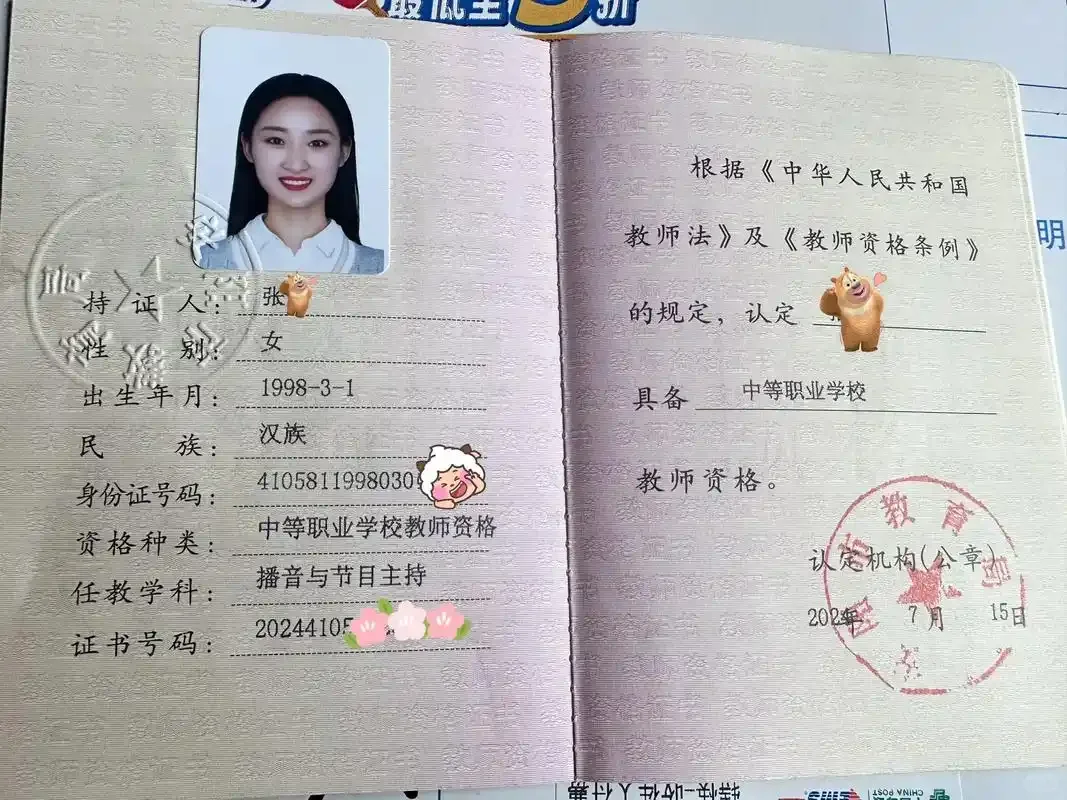 最低至5折
持证人：张
性别：女
出生年月：1998-3-1
民族：汉族
身份证号码：4105811998030
资格种类：中等职业学校教师资格
任教学科：播音与节目主持
证书号码：20244105
根据《中华人民共和国
教师法》及《教师资格条例》
的规定，认定
具备 中等职业学校
教师资格。
教育
认定机构(公章)
2024年 7月 15日
明
特快-收件人付费
EMS
CHINA POST